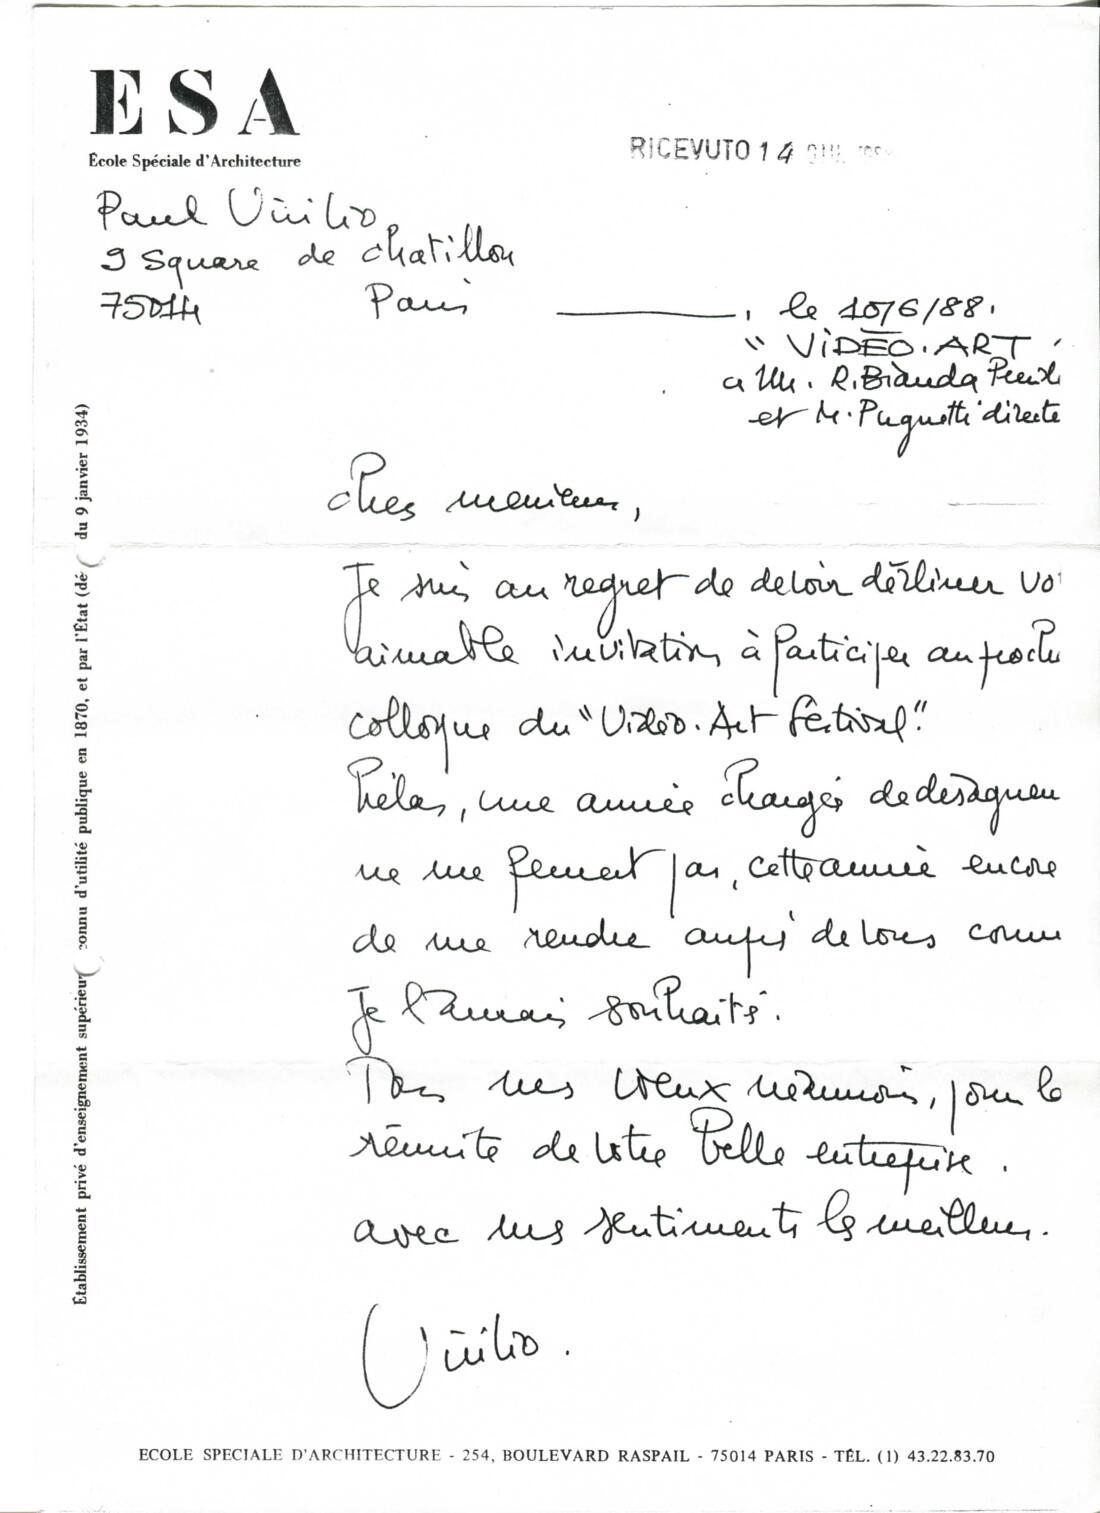 ESA
École Spéciale d'Architecture
RICEVUTO 14
Paul Virilio
9 Square de Chatillon
75014 Paris
, le 10/6/88.
"VIDÉO.ART"
a Mr. R.Bianda
et M. directe
Chers messieurs,
Je suis au regret de devoir décliner vo
aimable invitation à participer au proche
colloque du "Vidéo.Art festival".
Hélas, une année chargée de
ne me permet pas, cette année encore
de me rendre auprès de vous comme
Je l'aurais souhaité.
Tous mes voeux néanmoins, pour la
réussite de votre belle entreprise.
avec mes sentiments les meilleurs.
Virilio.
Établissement privé d'enseignement supérieur connu d'utilité publique en 1870, et par l'État (dé du 9 janvier 1934)
ECOLE SPECIALE D'ARCHITECTURE - 254, BOULEVARD RASPAIL - 75014 PARIS - TÉL. (1) 43.22.83.70